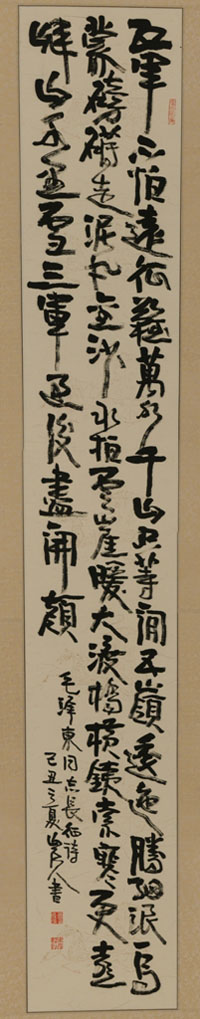 紅軍不怕遠征難萬水千山只等閒五嶺逶迤騰細浪烏
蒙磅礴走泥丸金沙水拍雲崖暖大渡橋橫鐵索寒更喜
岷山千里雪三軍過後盡開顏
毛澤東同志長征詩
己丑之夏人書